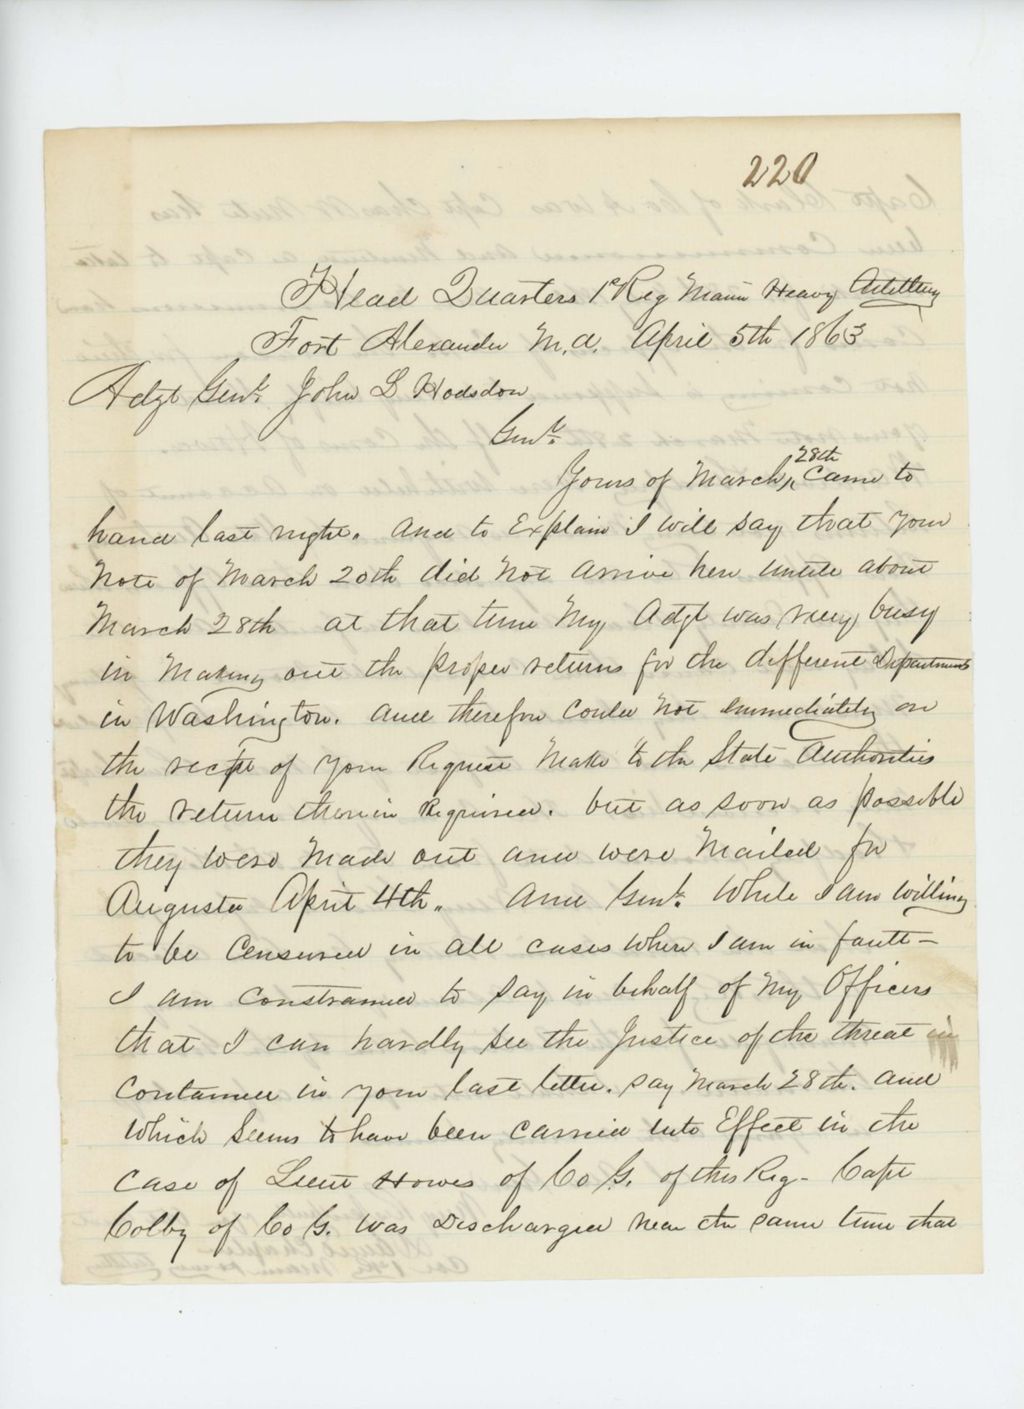 220
Head Quarters 1st Reg Maine Heavy Artillery
Fort Alexander M.d. April 5th 1863
Adgt Genl. John L Hodsdon
Genl.
Yours of March 28th Came to
hand last night. And to Explain I will say that your
Note of March 20th did Not arrive here untill about
March 28th at that time My Adgt was very busy
in Making out the proper returns for the different Departments
in Washington. and therefore Could Not Immediately on
the recpt of your Request Make to the State Authorities
the return therein Required. but as soon as possible
they were Made out and were Mailed for
Augusta April 4th. And Genl. While I am willing
to be Censured in all cases where I am in fault—
I am constrained to say in behalf of My Officers
that I can hardly see the Justice of the threat
contained in your last letter. say March 28th. and
which seems to have been carried into Effect in the
case of Lieut Howes of Co G. of this Reg- Capt
Colby of Co G. was Discharged near the same time that